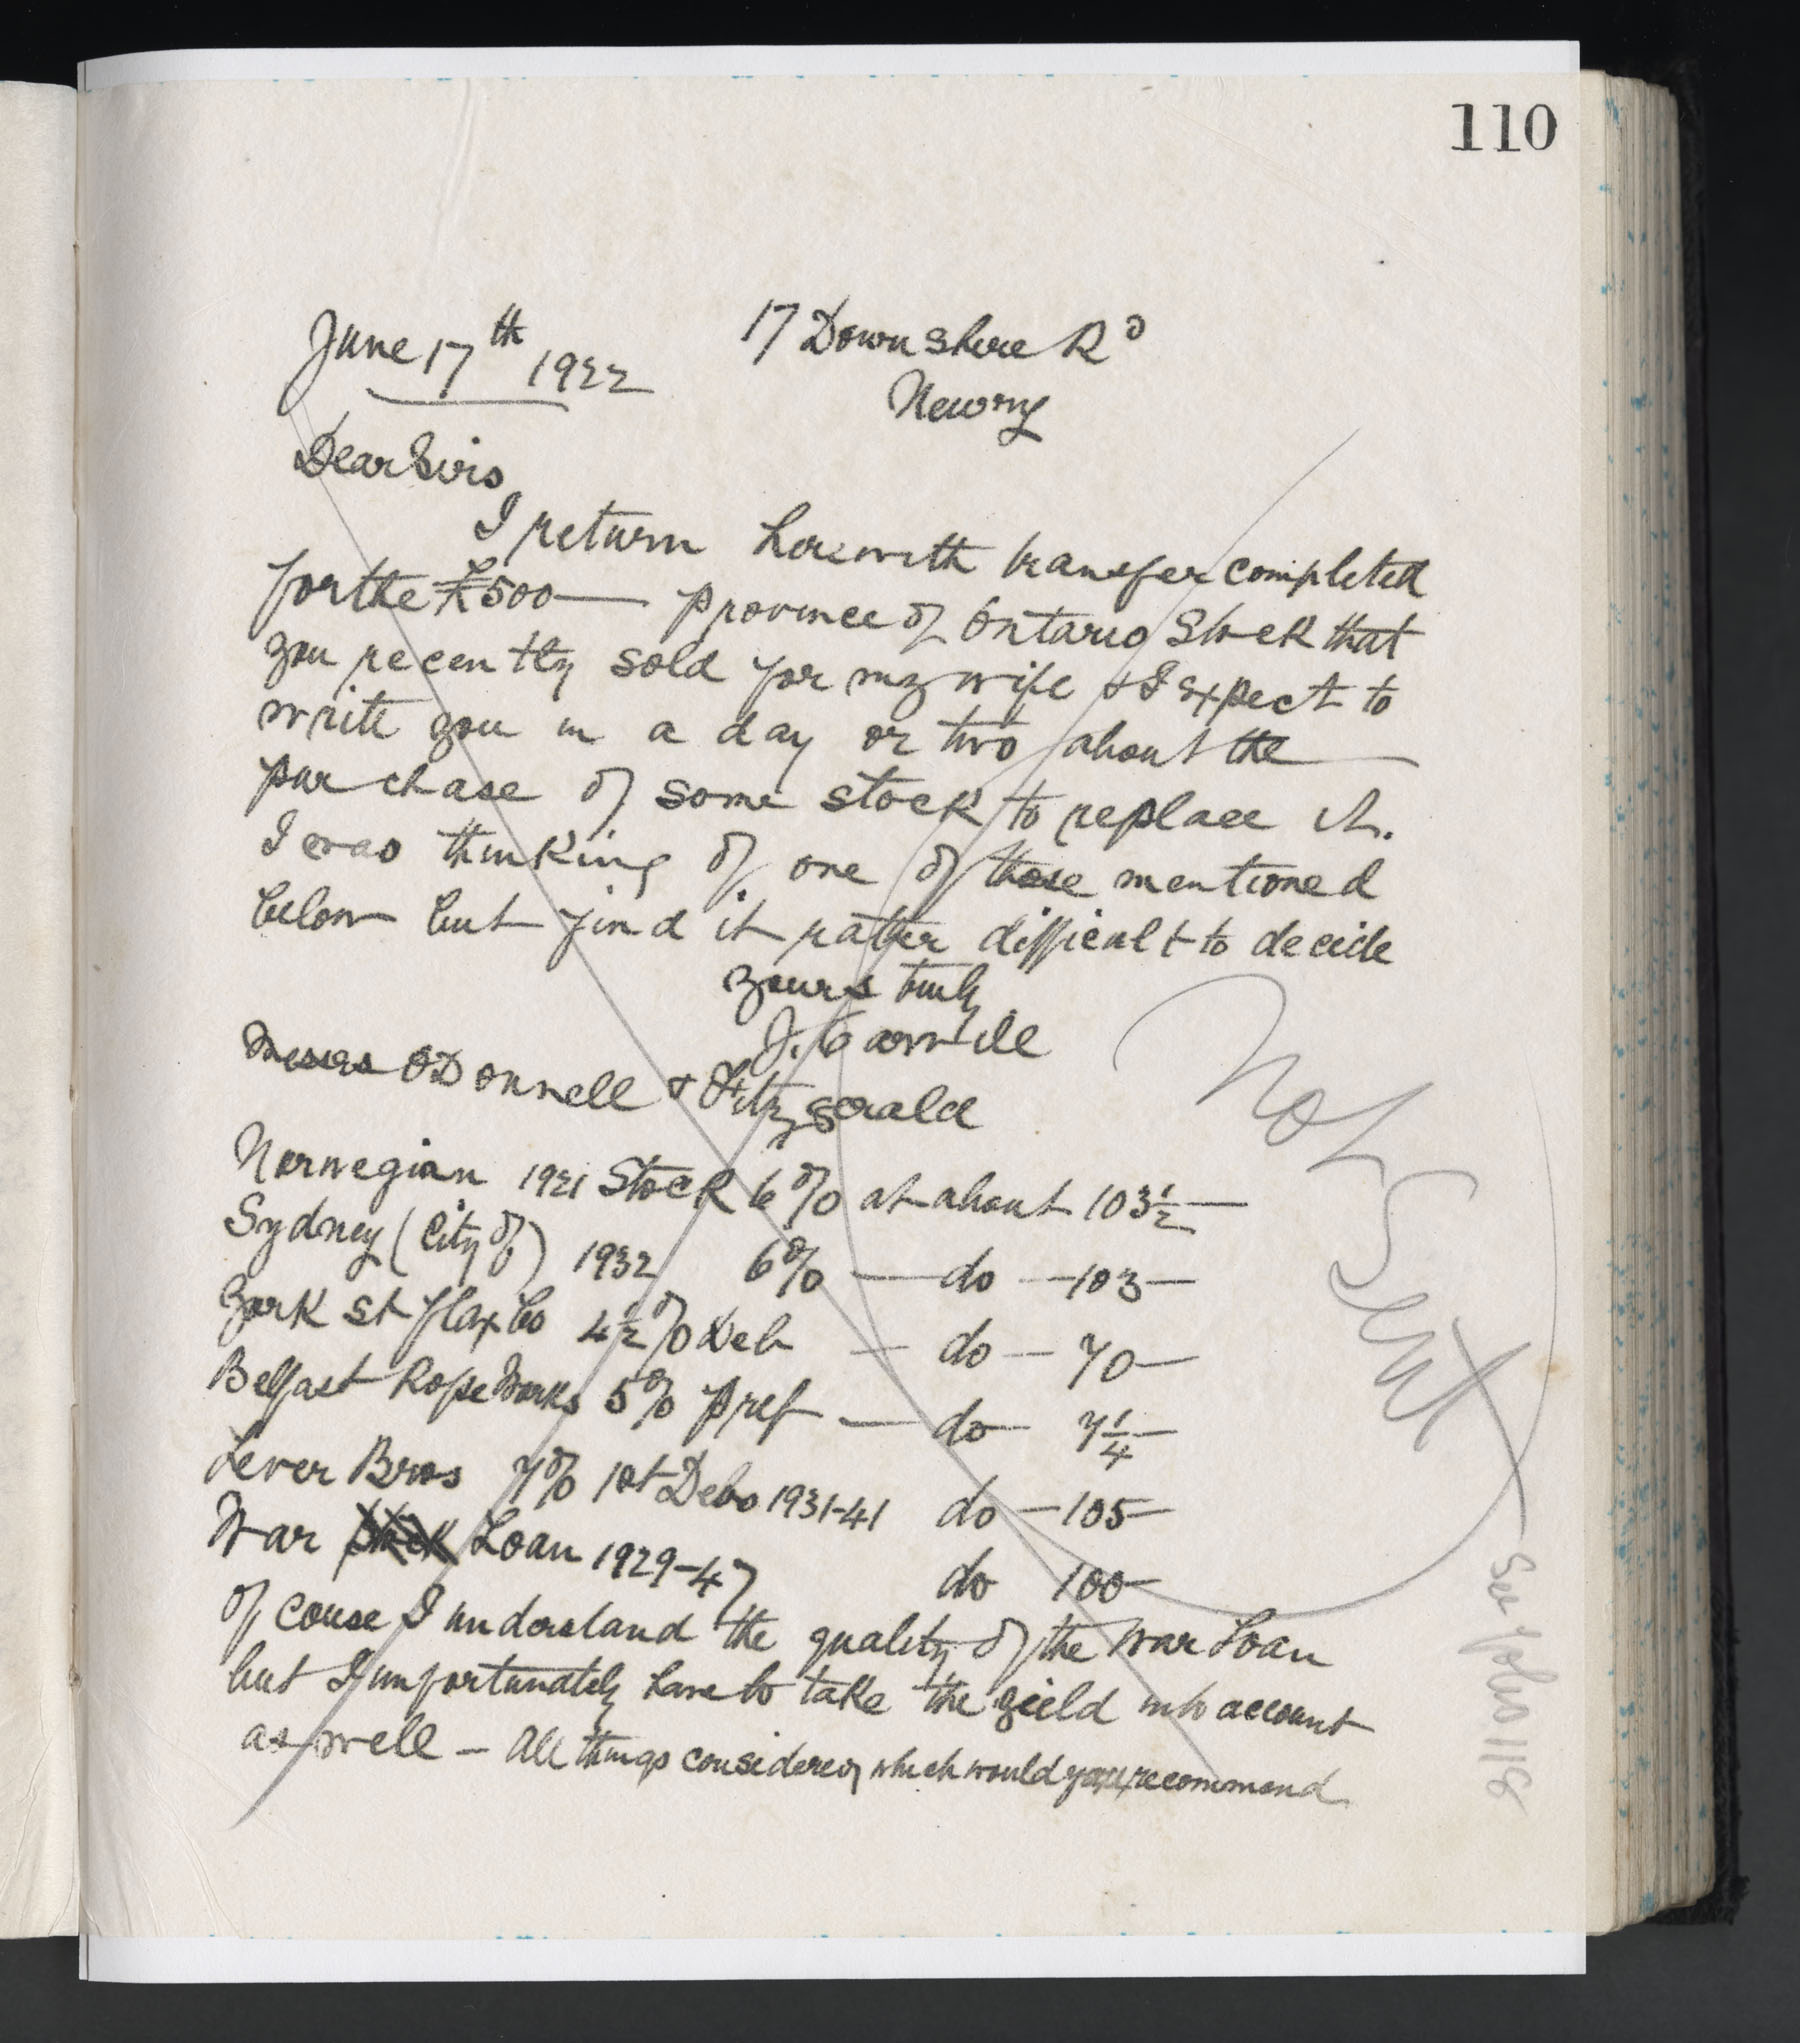 110
June 17th 1922
17 Downshire Rd
Newry
Dear Sirs
I return herewith transfer completed
for the £500 — province of Ontario Stock that
you recently sold for my wife & I expect to
write you in a day or two about the —
purchase of some stock to replace it.
I was thinking of one of those mentioned
below but find it rather difficult to decide
yours truly
J. Carvill
Messrs O'Donnell & Fitzgerald
Norwegian 1921 Stock 6% at about 103½ —
Sydney (City of) 1932 6% — do — 103 —
York St Flax Co 4½% Deb — do — 70 —
Belfast Rope Works 5% pref — do — 7¼ —
Lever Bros 7% 1st Debs 1931-41 do — 105 —
War Stock Loan 1929-47 do 100 —
of couse I understand the quality of the War Loan
but I unfortunately have to take the yield into account
as well — All things considered, which would you recommend
Not Sent
See folio 118